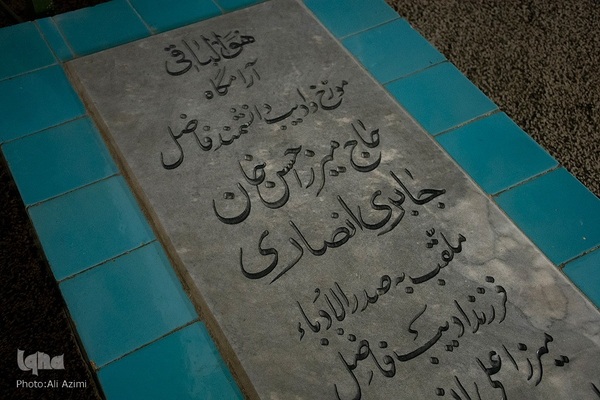 هوالباقی
آرامگاه
مورخ و ادیب و دانشمند فاضل
حاج میرزا حسن خان
جابری انصاری
ملقب به صدرالادباء
فرزند ادیب فاضل
میرزا علی
iqna
Photo:Ali Azimi